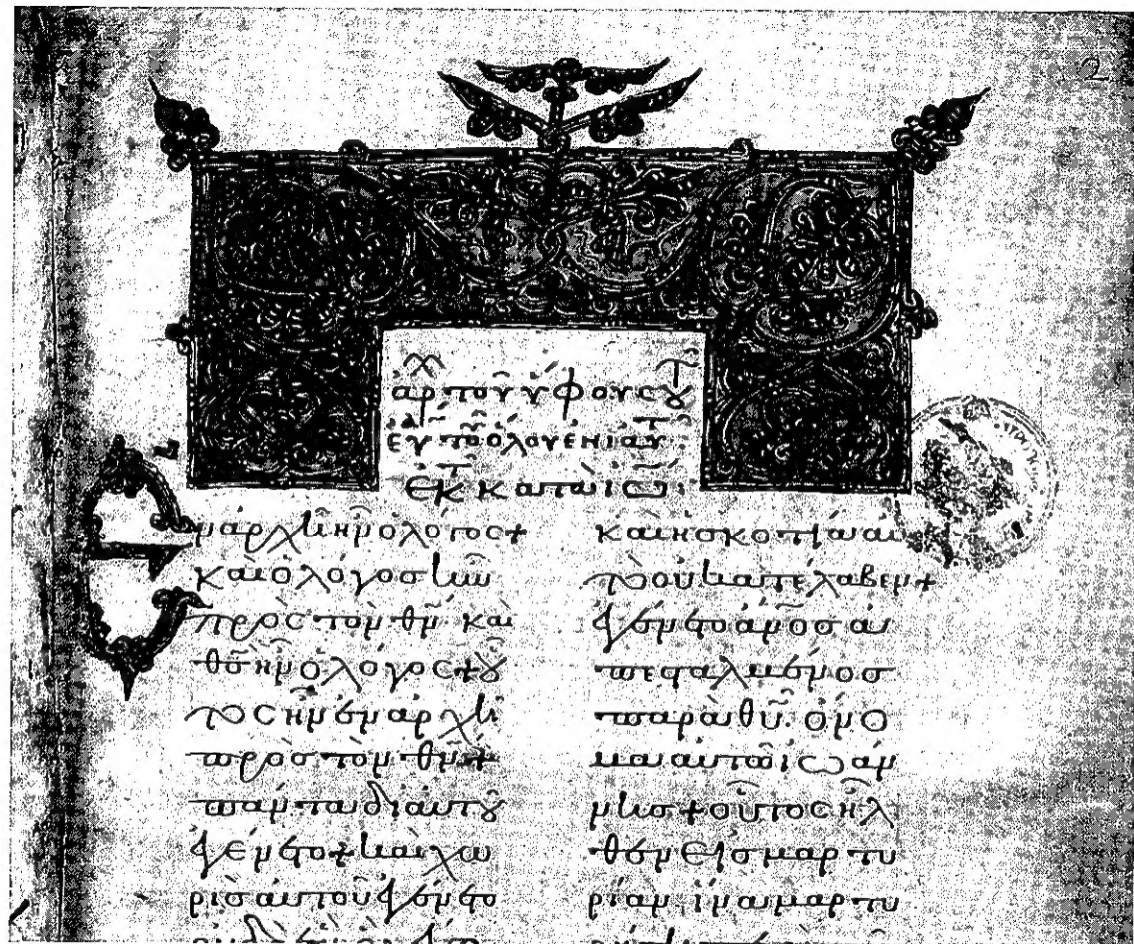 ἐκ κατὰ ἰω
Ἐν ἀρχῆ ἦν ὁ λόγος+
καὶ ὁ λόγος ἦν
πρὸς τὸν θν καὶ
θς ἦν ὁ λόγος+ οὗ
τος ἦν ἐν ἀρχῆ
πρὸς τὸν θν+
πάντα δι αὐτοῦ
ἐγένετο+ καὶ χω
ρὶς αὐτοῦ ἐγένετο
καὶ ἡ σκοτία αὐ
τὸ οὐ κατέλαβεν+
ἐγένετο ἄνος ἀ
πεσταλμένος
παρὰ θυ. ὄνο
μα αὐτῶ ἰωάν
νης+ οὗτος ἦλ
θεν εἰς μαρτυ
ρίαν, ἵνα μαρτυ
2